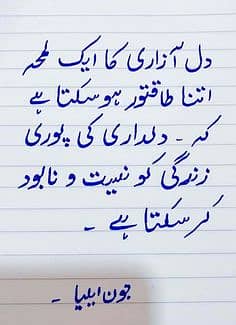 دل آزاری کا ایک لمحہ
اتنا طاقتور ہوسکتا ہے
کہ ۔ دلداری کی پوری
زندگی کو نیست و نابود
کر سکتا ہے ۔
جون ایلیا ۔